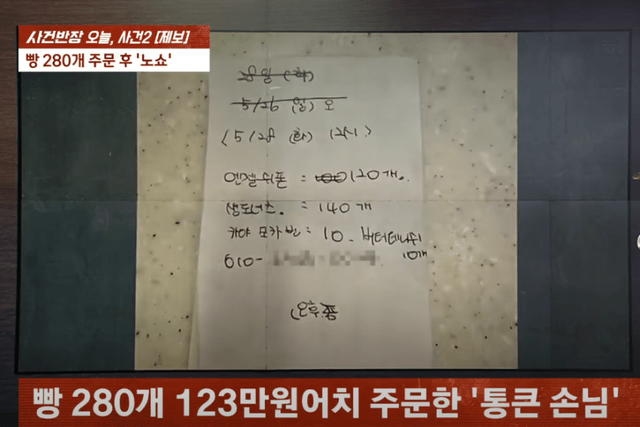 사건반장 오늘, 사건2 [제보]
빵 280개 주문 후 '노쇼'
28일 (화)
5/26 (일) 오
<5/28 (화) 12시>
엔젤쉬폰 : 120개.
생도너츠. = 140개
카야 모카빈 = 10. 버터데니쉬
010- 10개
(오후쯤
빵 280개 123만원어치 주문한 '통큰 손님'